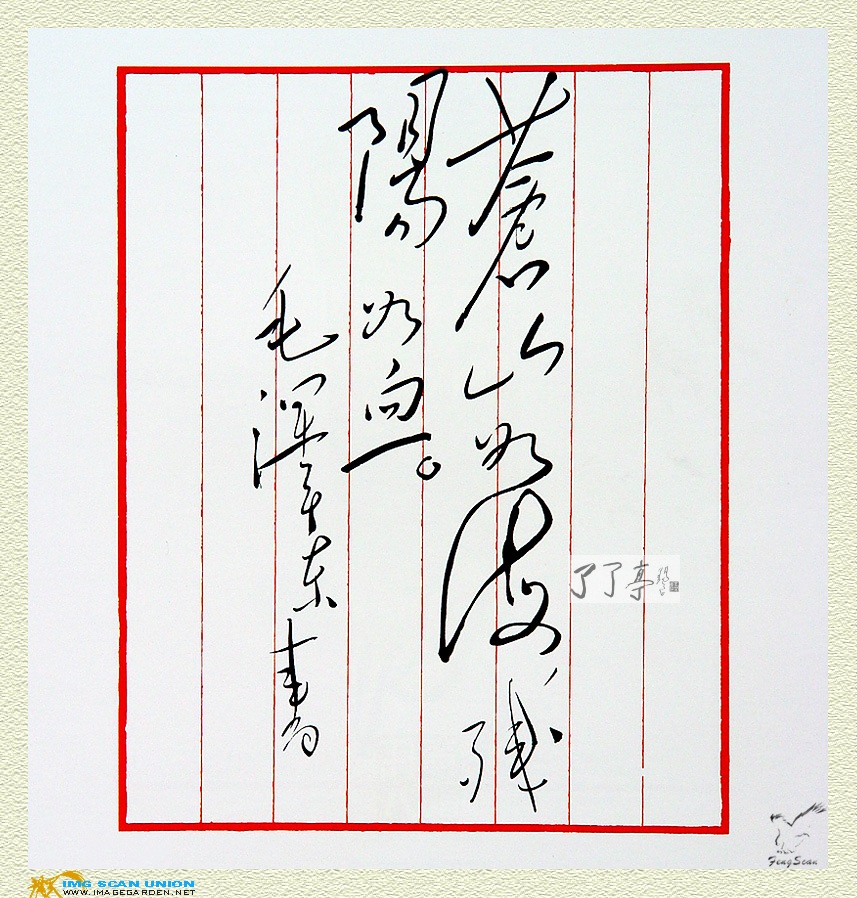 蒼山如海殘
陽如血。
毛澤東書
了了亭
FengScan
IMG SCAN UNION
WWW.IMAGEGARDEN.NET